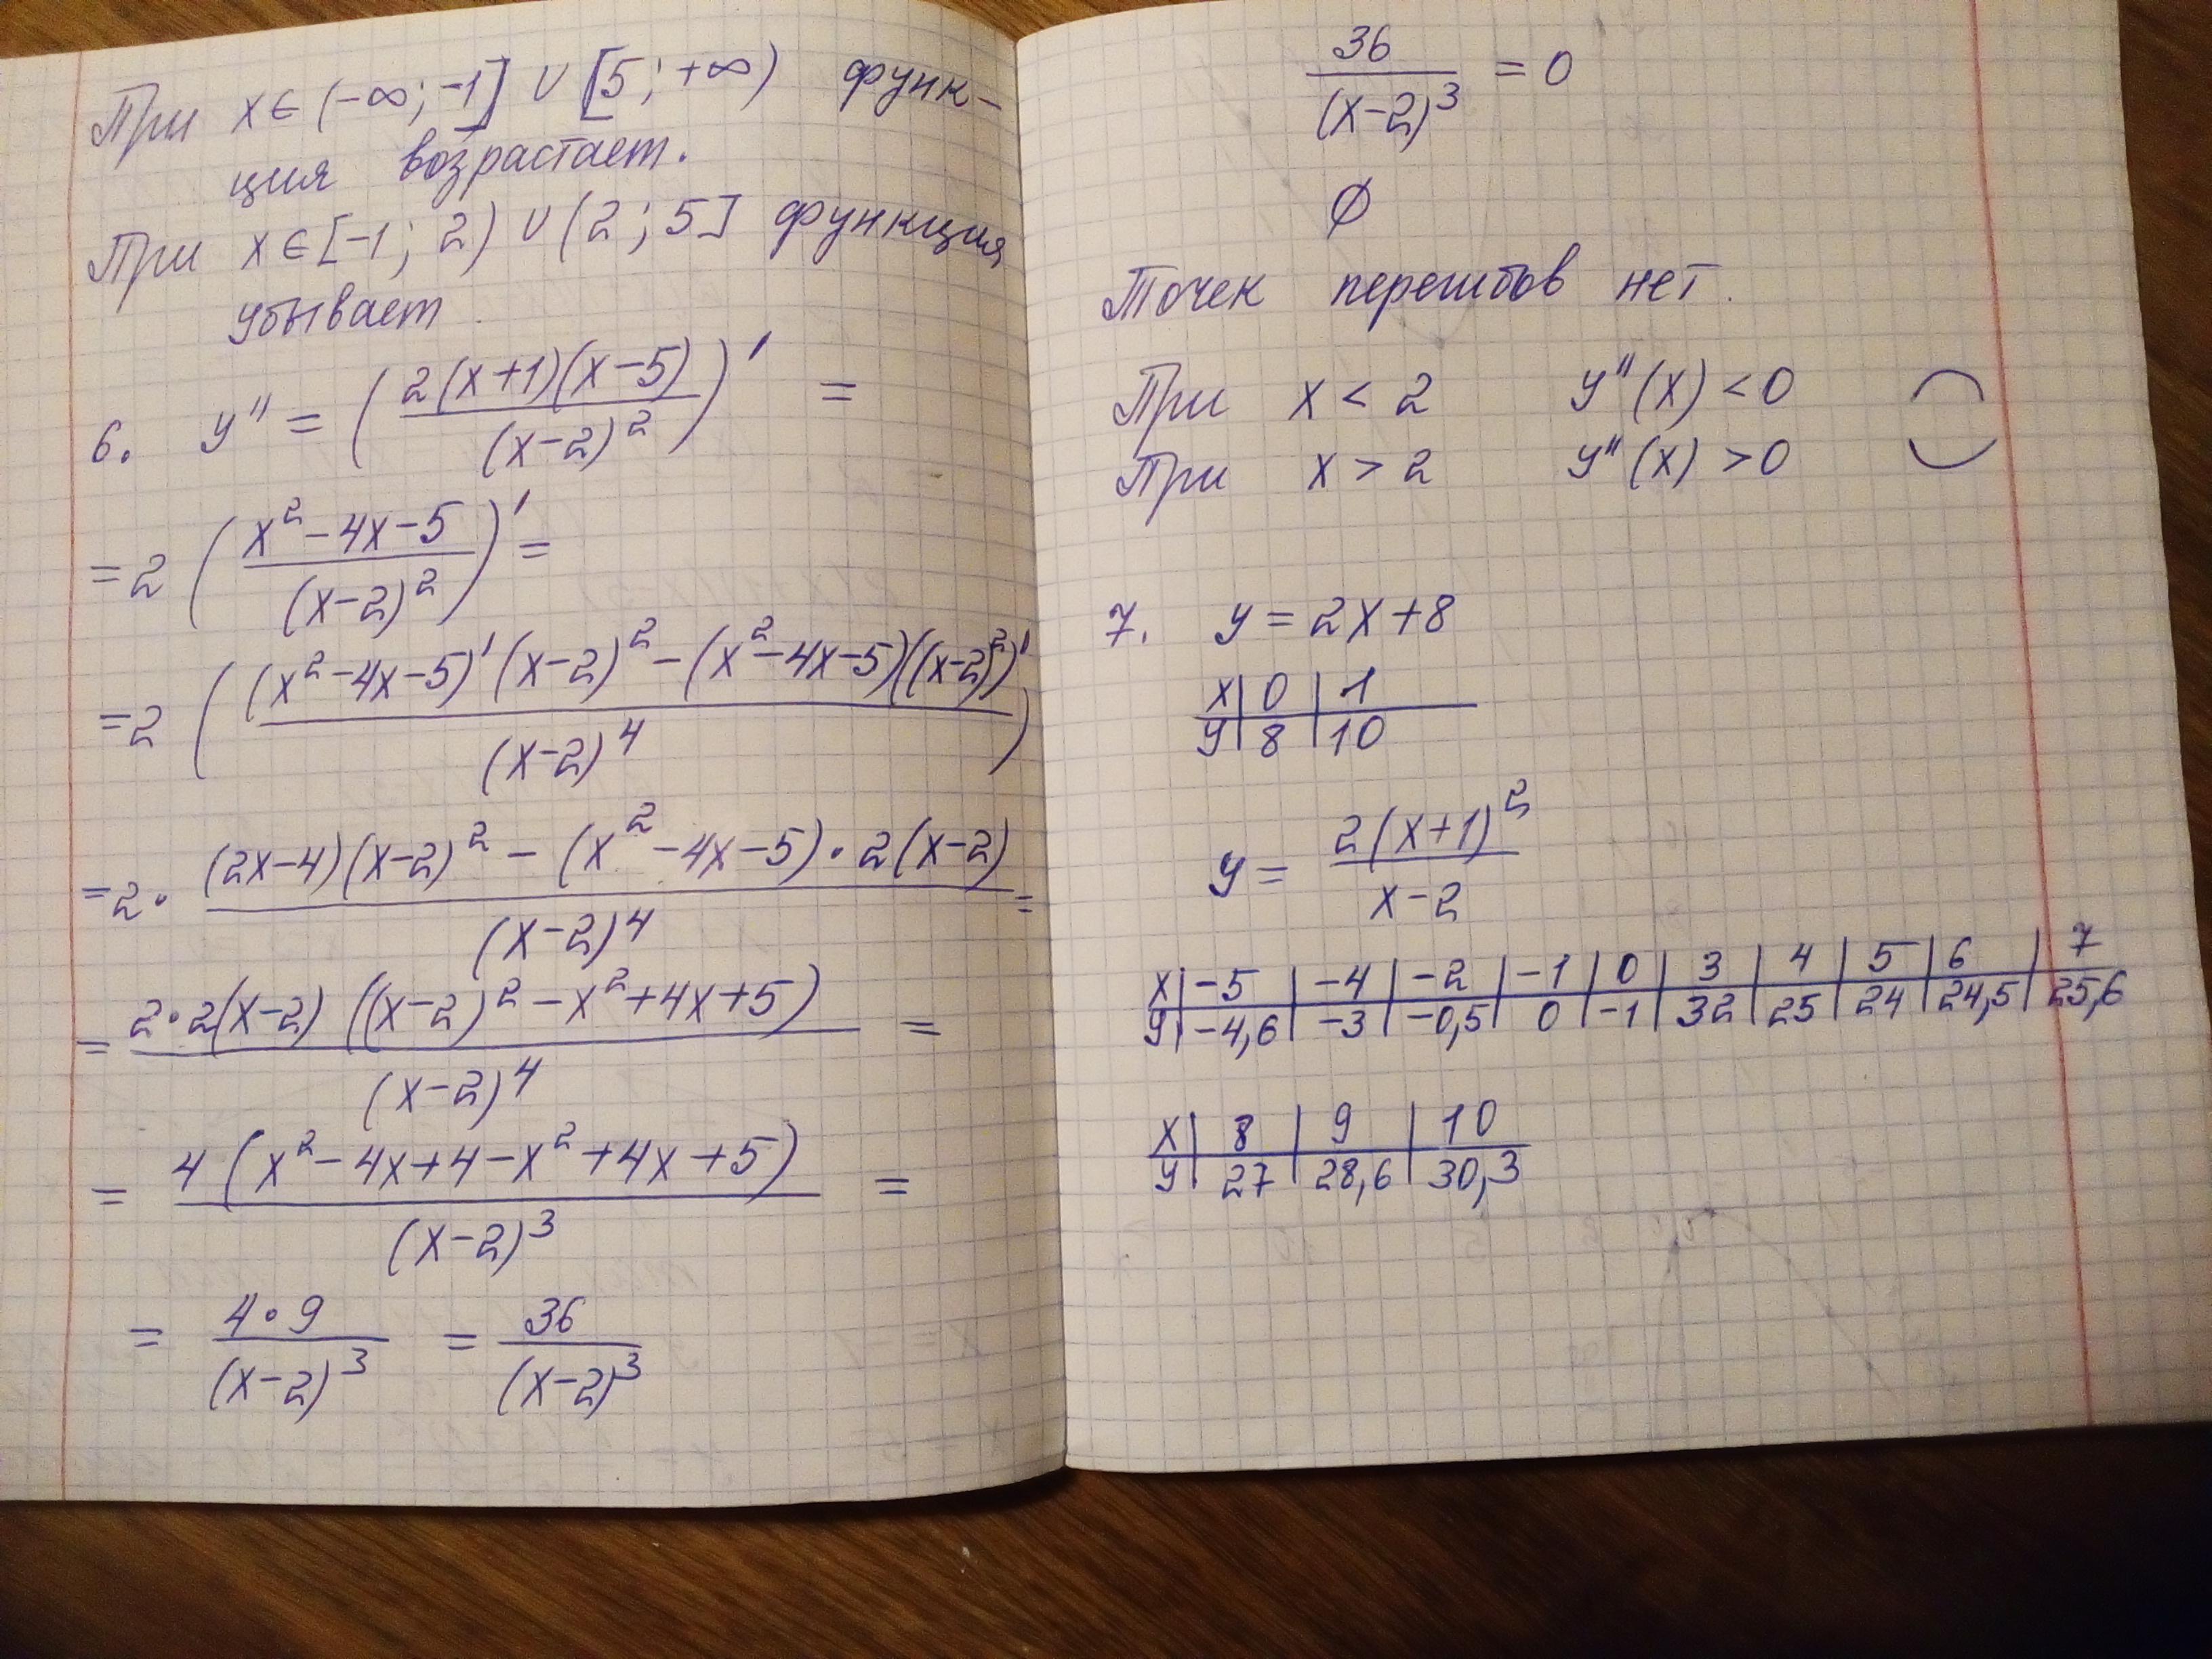 При x ∈ (-∞; -1] ∪ [5; +∞) функ-
ция возрастает.
При x ∈ [-1; 2) ∪ (2; 5] функция
убывает.
6. y'' = (2(x+1)(x-5) / (x-2)²)' =
= 2 ((x²-4x-5) / (x-2)²)' =
= 2 (((x²-4x-5)'(x-2)² - (x²-4x-5)((x-2)²)') / (x-2)⁴)
= 2 · ((2x-4)(x-2)² - (x²-4x-5) · 2(x-2)) / (x-2)⁴ =
= 2·2(x-2) ((x-2)² - x² + 4x + 5) / (x-2)⁴ =
= 4 (x² - 4x + 4 - x² + 4x + 5) / (x-2)³ =
= 4·9 / (x-2)³ = 36 / (x-2)³
36 / (x-2)³ = 0
∅
Точек перегибов нет.
При x < 2 y''(x) < 0 ⌒
При x > 2 y''(x) > 0 ⌣
7. y = 2x+8
x | 0 | 1
y | 8 | 10
y = 2(x+1)² / x-2
x | -5 | -4 | -2 | -1 | 0 | 3 | 4 | 5 | 6 | 7
y | -4,6 | -3 | -0,5 | 0 | -1 | 32 | 25 | 24 | 24,5 | 25,6
x | 8 | 9 | 10
y | 27 | 28,6 | 30,3